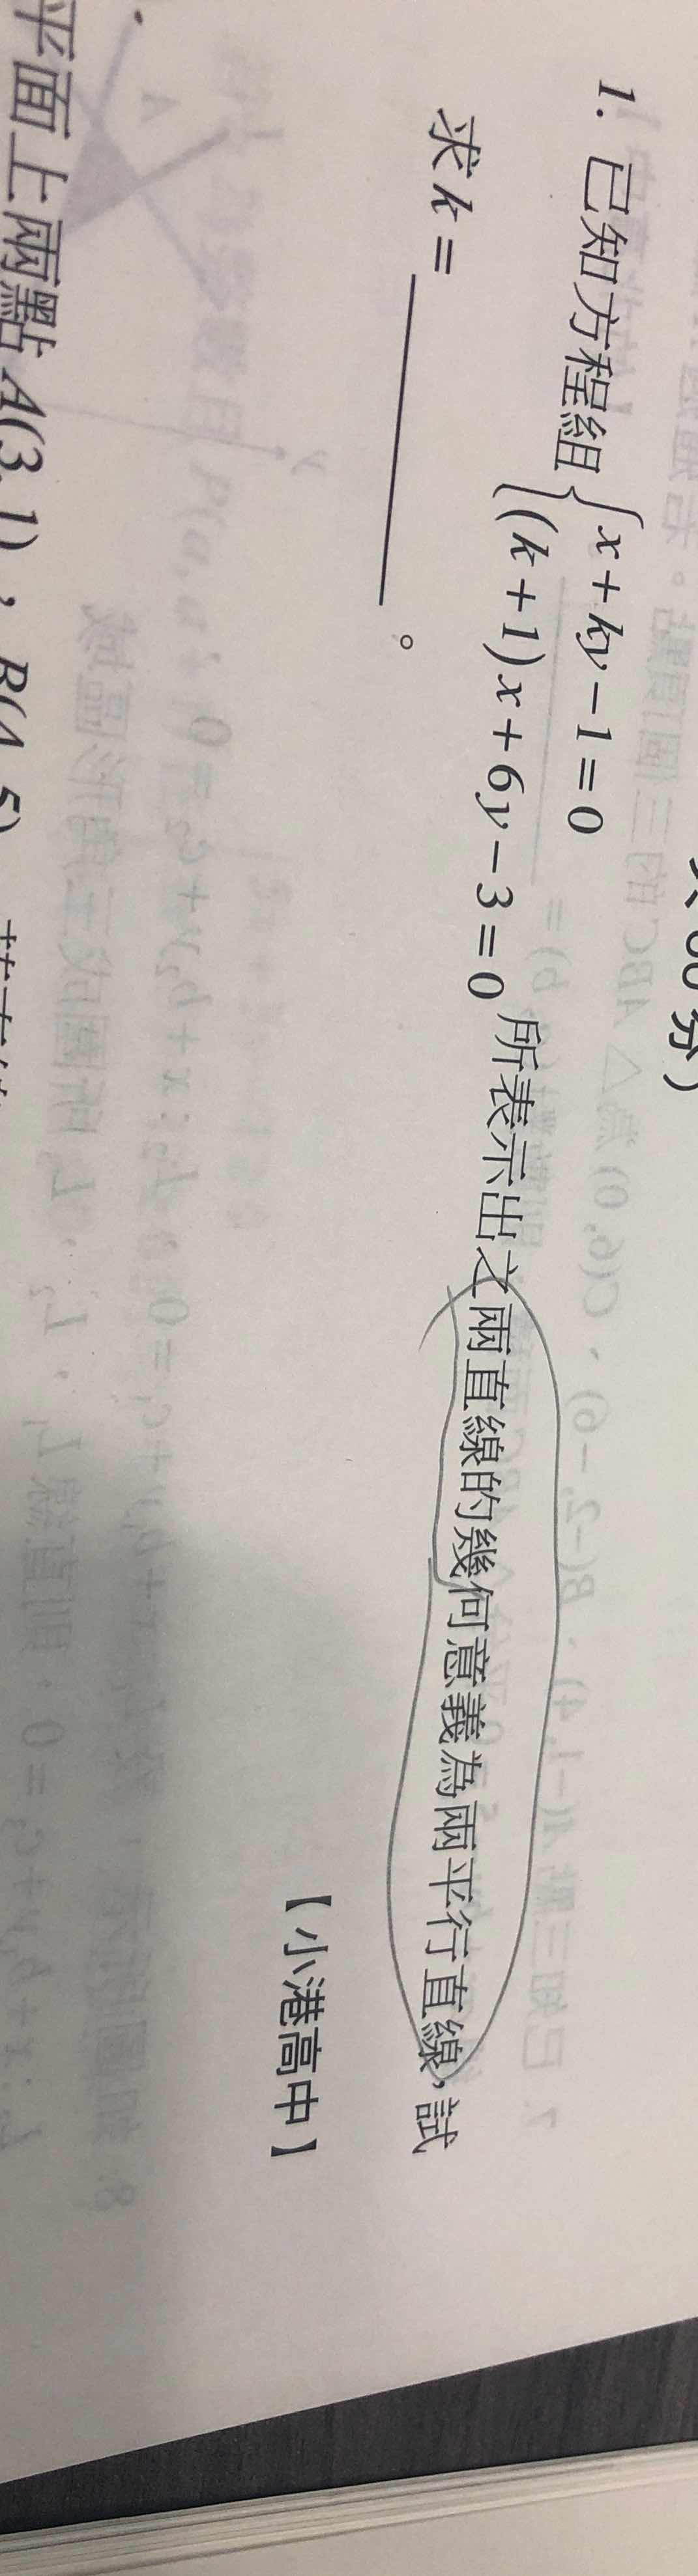 分）
1. 已知方程組 { x + ky − 1 = 0
(k + 1)x + 6y − 3 = 0 所表示出之兩直線的幾何意義為兩平行直線，試
求 k = ______。
【小港高中】
平面上兩點 A(3,1)，B(4,5)